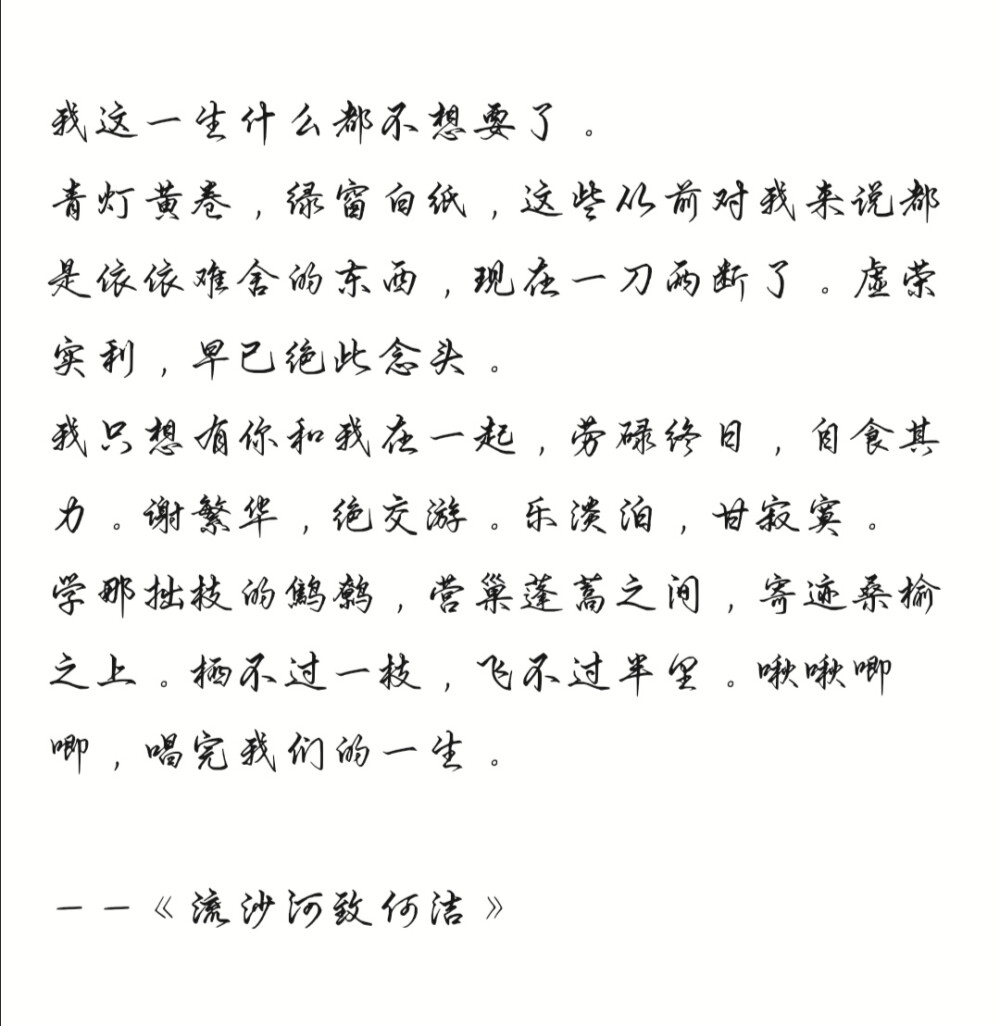 我这一生什么都不想要了。
青灯黄卷，绿窗白纸，这些以前对我来说都
是依依难舍的东西，现在一刀两断了。虚荣
实利，早已绝此念头。
我只想有你和我在一起，劳碌终日，自食其
力。谢繁华，绝交游。乐淡泊，甘寂寞。
学那拙枝的鹪鹩，营巢蓬蒿之间，寄迹桑榆
之上。栖不过一枝，飞不过半里。啾啾唧
唧，唱完我们的一生。
——《流沙河致何洁》